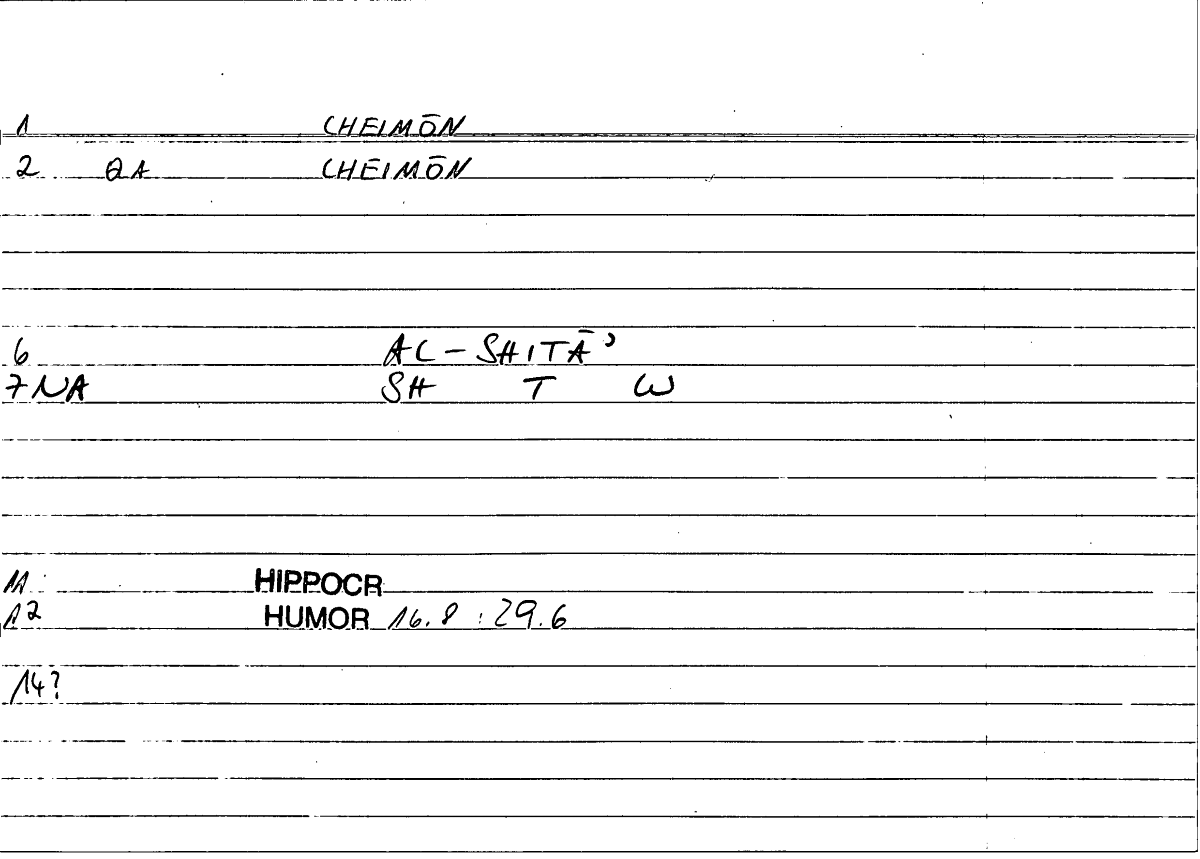 1 CHEIMŌN
2 QA CHEIMŌN
6 AL-SHITĀʾ
7 NA SH T W
11 HIPPOCR
12 HUMOR 16.8 : 29.6
14?